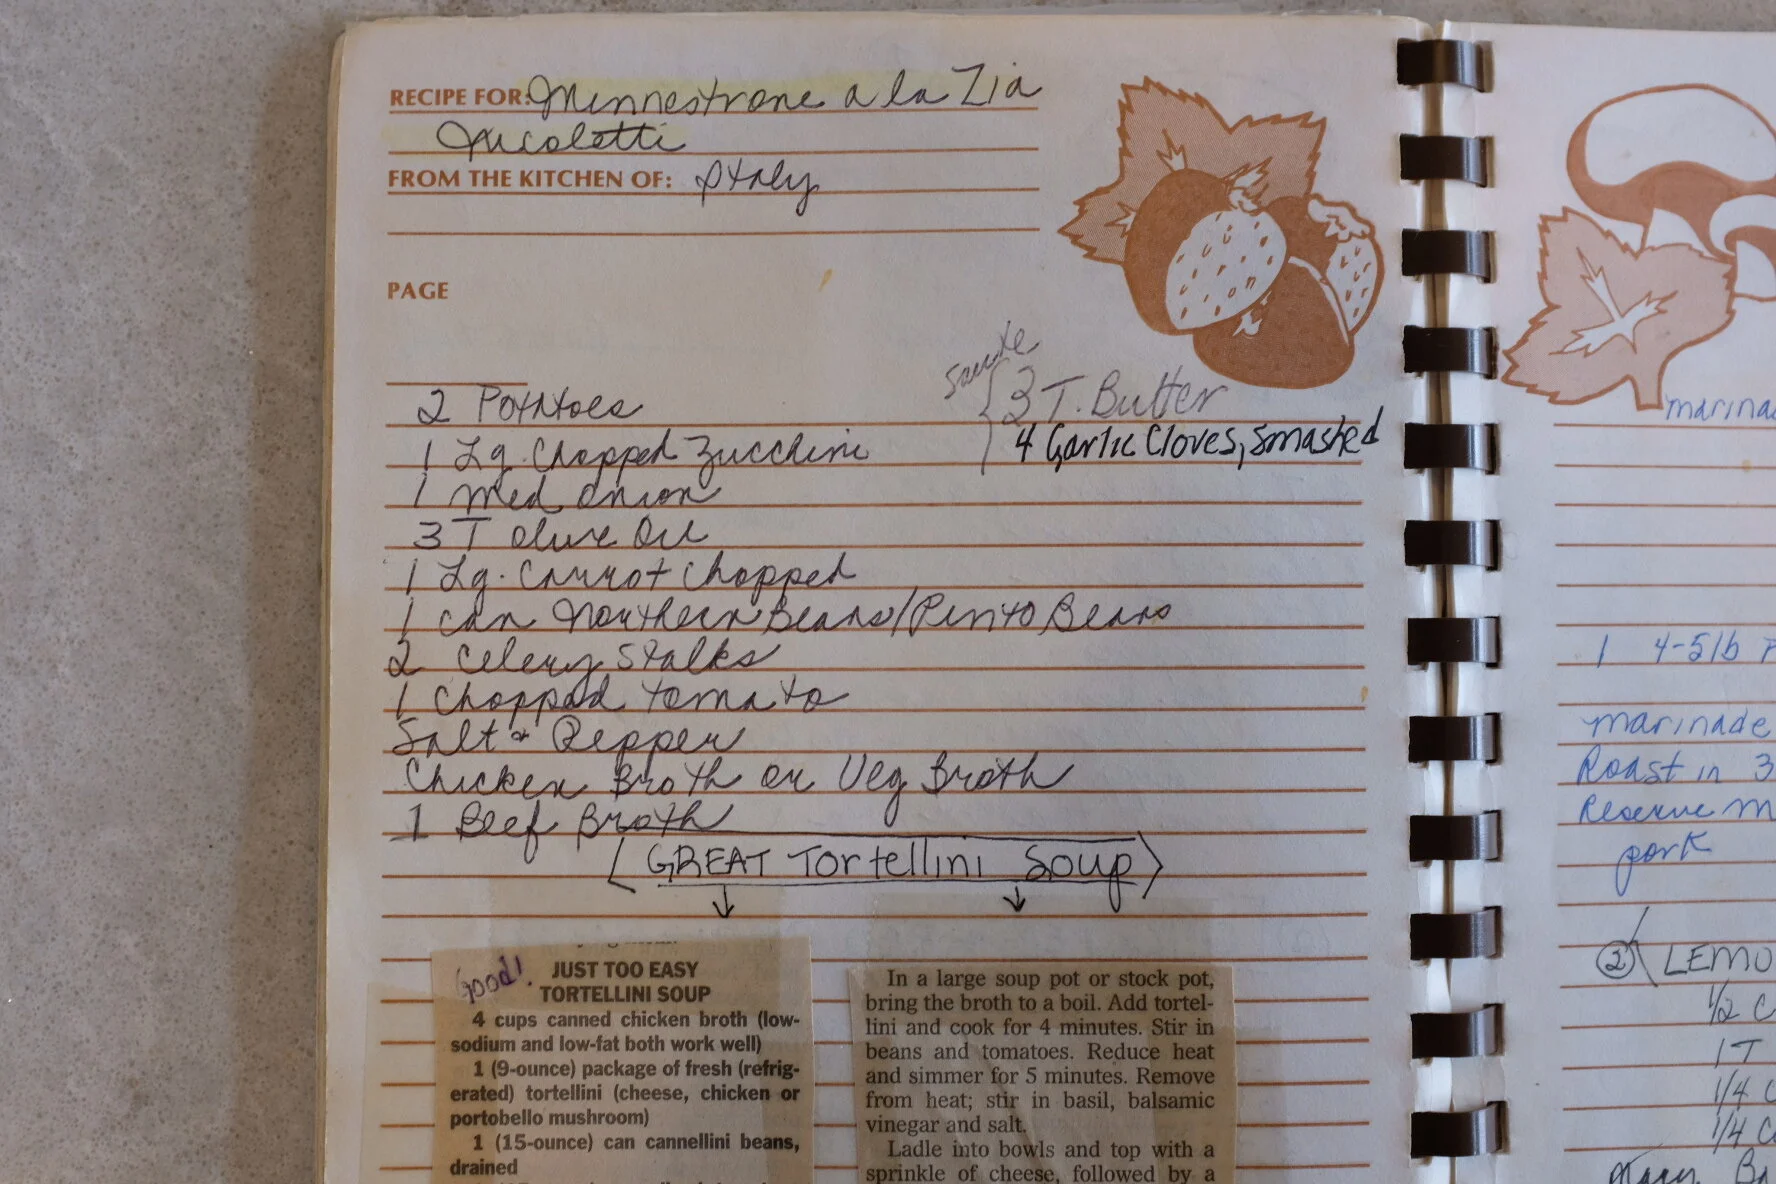 RECIPE FOR: Minnestrone a la Zia
Nicoletti
FROM THE KITCHEN OF: Italy
PAGE
saute
3 T. Butter
4 Garlic Cloves, smashed
2 Potatoes
1 Lg. Chopped Zucchini
1 med onion
3 T olive Oil
1 Lg. Carrot Chopped
1 can Northern Beans/Pinto Beans
2 Celery Stalks
1 Chopped tomato
Salt & Pepper
Chicken Broth or Veg Broth
1 Beef Broth
GREAT Tortellini Soup
Good!
JUST TOO EASY
TORTELLINI SOUP
4 cups canned chicken broth (low-
sodium and low-fat both work well)
1 (9-ounce) package of fresh (refrig-
erated) tortellini (cheese, chicken or
portobello mushroom)
1 (15-ounce) can cannellini beans,
drained
In a large soup pot or stock pot,
bring the broth to a boil. Add tortel-
lini and cook for 4 minutes. Stir in
beans and tomatoes. Reduce heat
and simmer for 5 minutes. Remove
from heat; stir in basil, balsamic
vinegar and salt.
Ladle into bowls and top with a
sprinkle of cheese, followed by a
1 4-5lb
marinade
Roast in 3
Reserve
pork
②
1/2
1 T
1/4
1/4